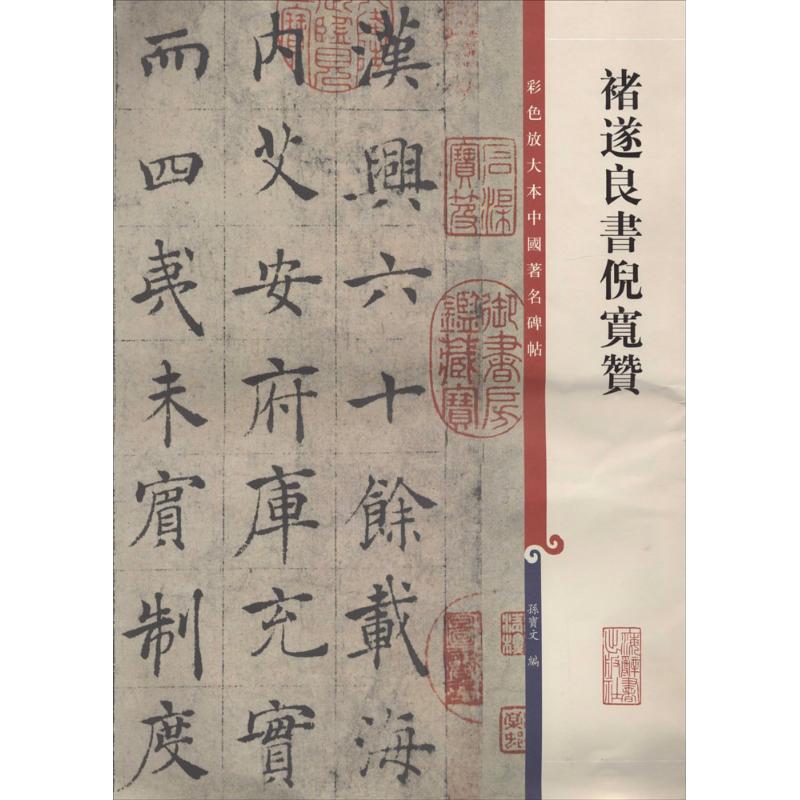 褚遂良書倪寬贊
彩色放大本中國著名碑帖
孫寶文 編
上海辭書出版社
御書房鑑藏寶
石渠寶笈
漢興六十餘載海
内艾安府庫充實
而四夷未賓制度